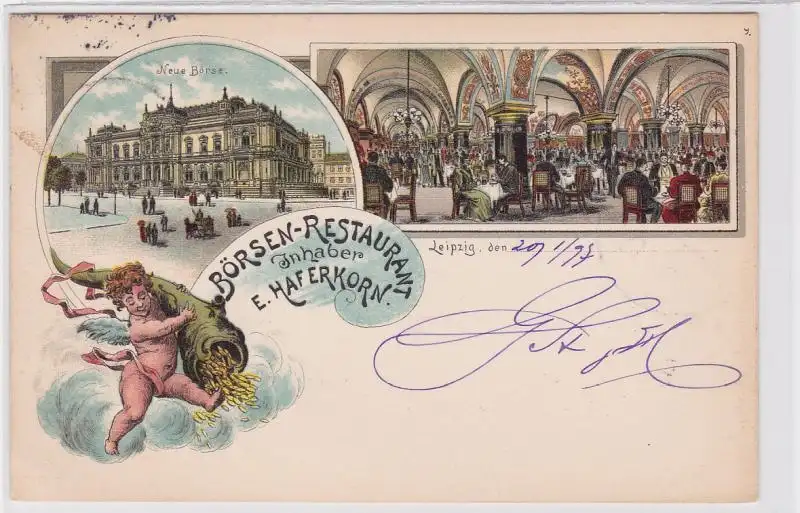 Neue Börse.
BÖRSEN-RESTAURANT
Inhaber
E. HAFERKORN.
Leipzig, den 20/1/97